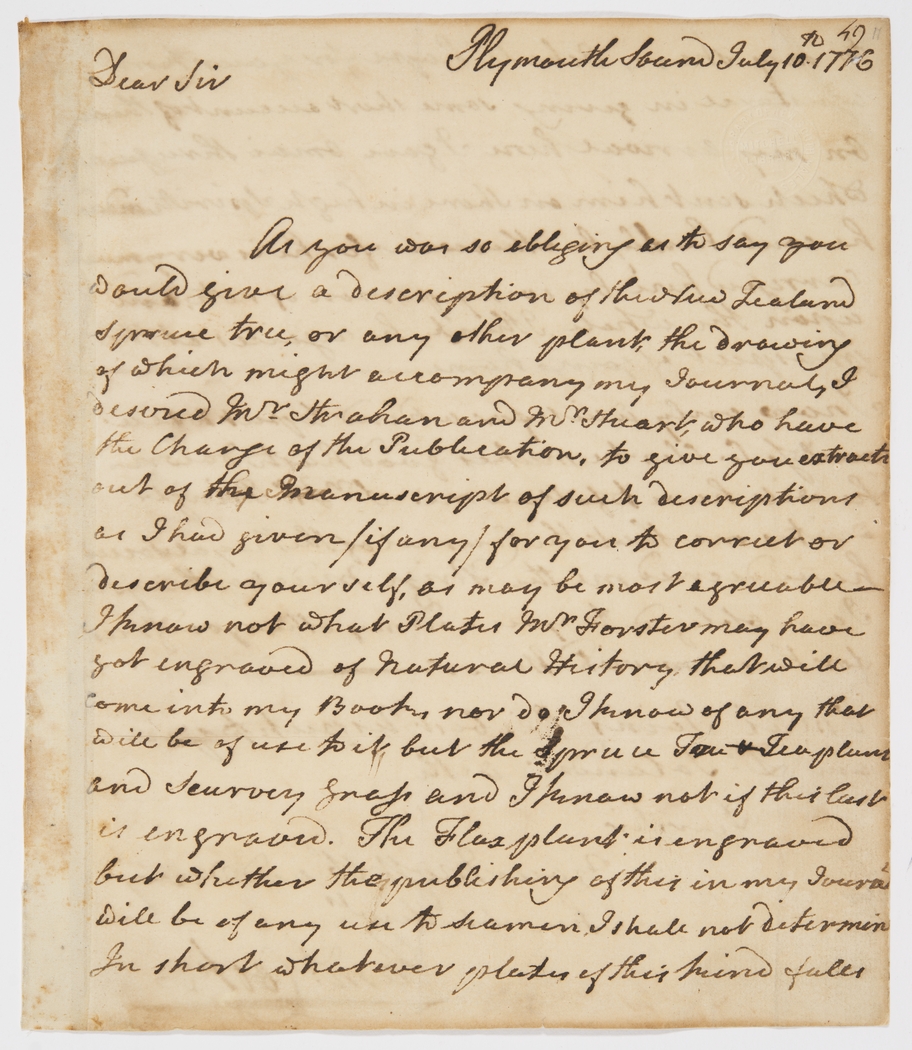 49
Plymouth Sound July 10th 1776
Dear Sir
As you was so obliging as to say you
would give a description of the New Zealand
spruce tree, or any other plant, the drawing
of which might accompany my Journal, I
desired Mr Strahan and Mr Stuart, who have
the Charge of the Publication, to give you extracts
out of the Manuscript of such descriptions
as I had given /if any/ for you to correct or
describe yourself, as may be most agreeable —
I know not what Plates Mr Forster may have
got engraved of Natural History that will
come into my Book, nor do I know of any that
will be of use to it, but the Spruce Tree & Tea plant
and Scurvey grass and I know not if this last
is engraved. The Flax plant is engraved
but whether the publishing of this in my Journal
will be of any use to seamen, I shall not determin
In short whatever plates of this kind falls